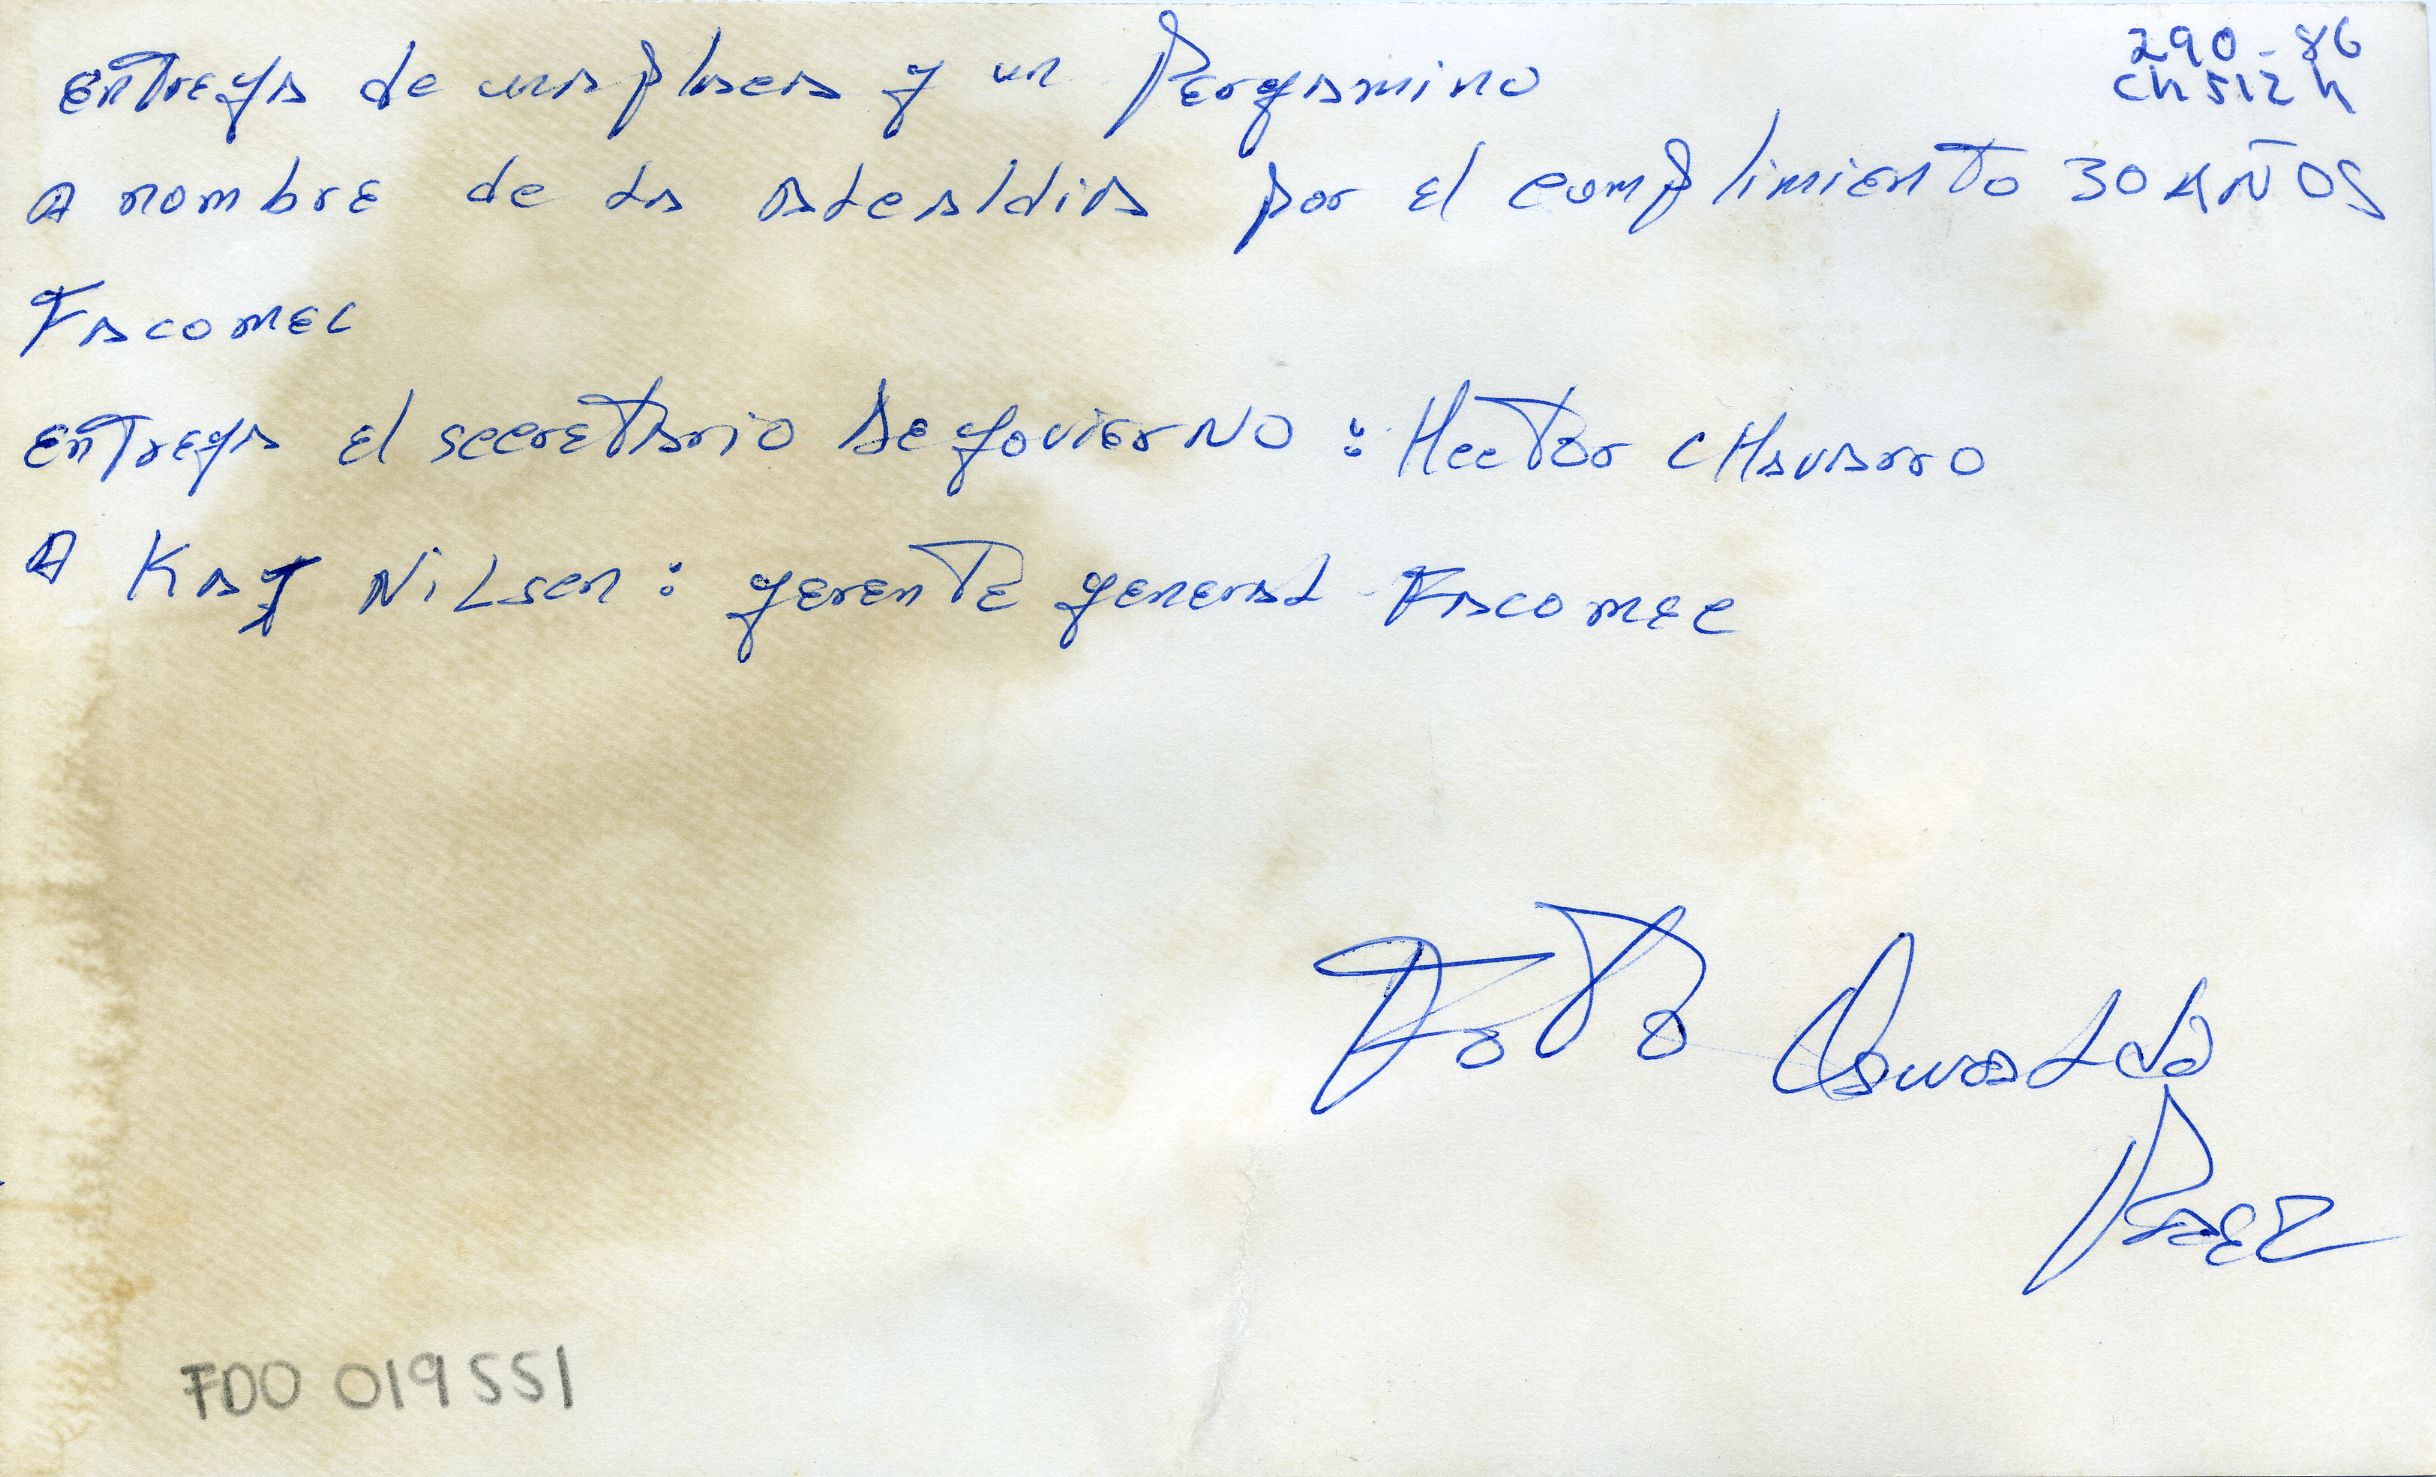 290-86
Ch512h
Entrega de una placa y un Pergamino
A nombre de la alcaldia por el complimiento 30 AÑOS
Facomec
Entrega el secretario de govierno : Hector CHavarro
A Kaj Nilsen : gerente general Facomec
Foto Oswaldo
Paez
FDO 019551